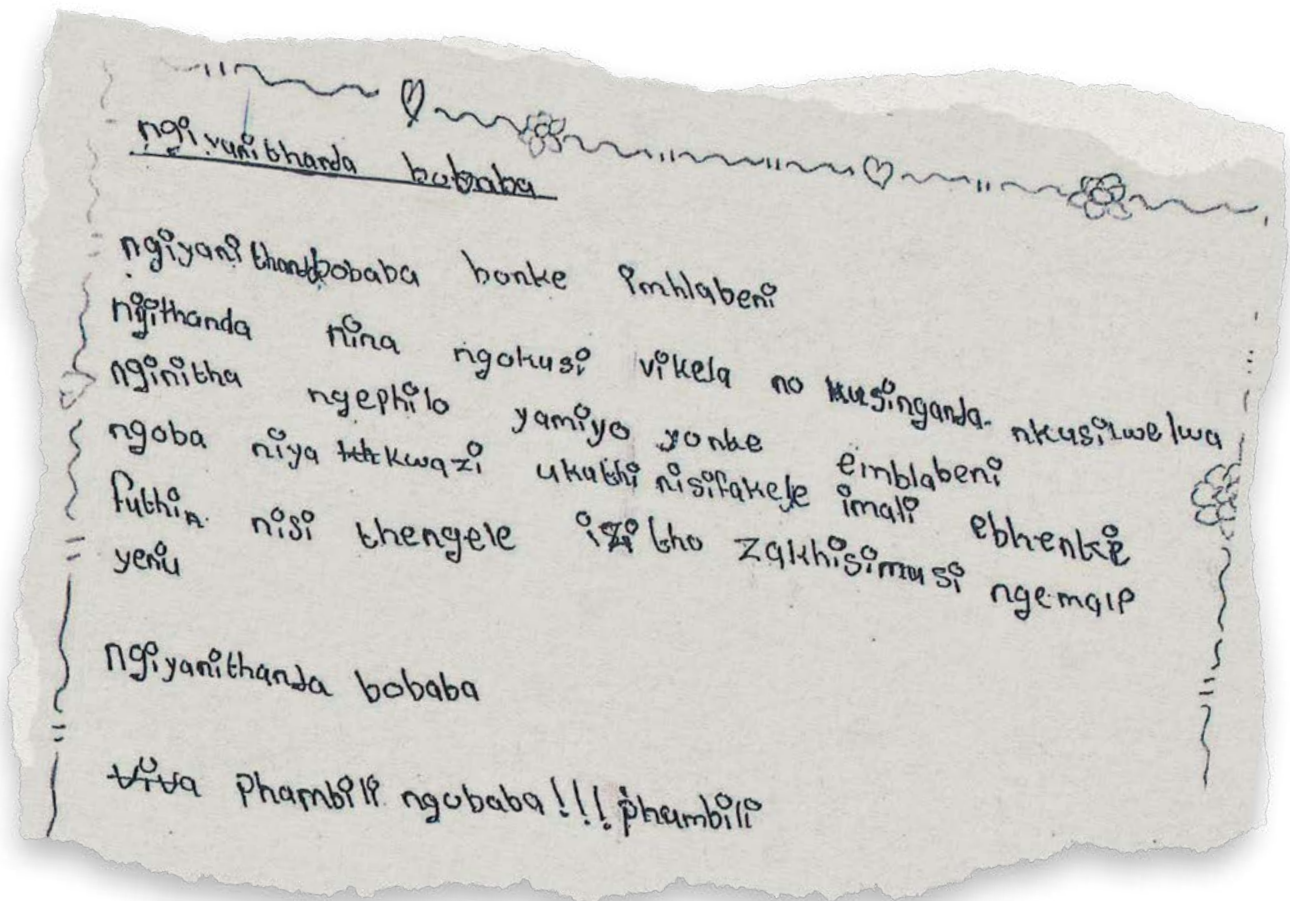 ngiyanithanda bobaba
ngiyanithandbobaba bonke imhlabeni
ngithanda nina ngokusi vikela no kusinganda. nkusilwelwa
nginitha ngephilo yamiyo yonke emblabeni
ngoba niya kwazi ukuthi nisifakele imali ebhenke
futhi nisi thengele izi tho zakhisimusi ngemali
yenu
ngiyanithanda bobaba
viva phambili ngobaba!!! phambili